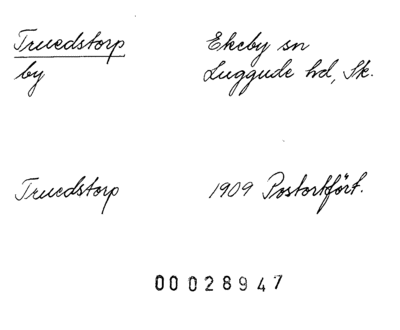 Truedstorp Ekeby sn
by Luggude hd, Sk.
Truedstorp 1909 Postortfört.
00028947